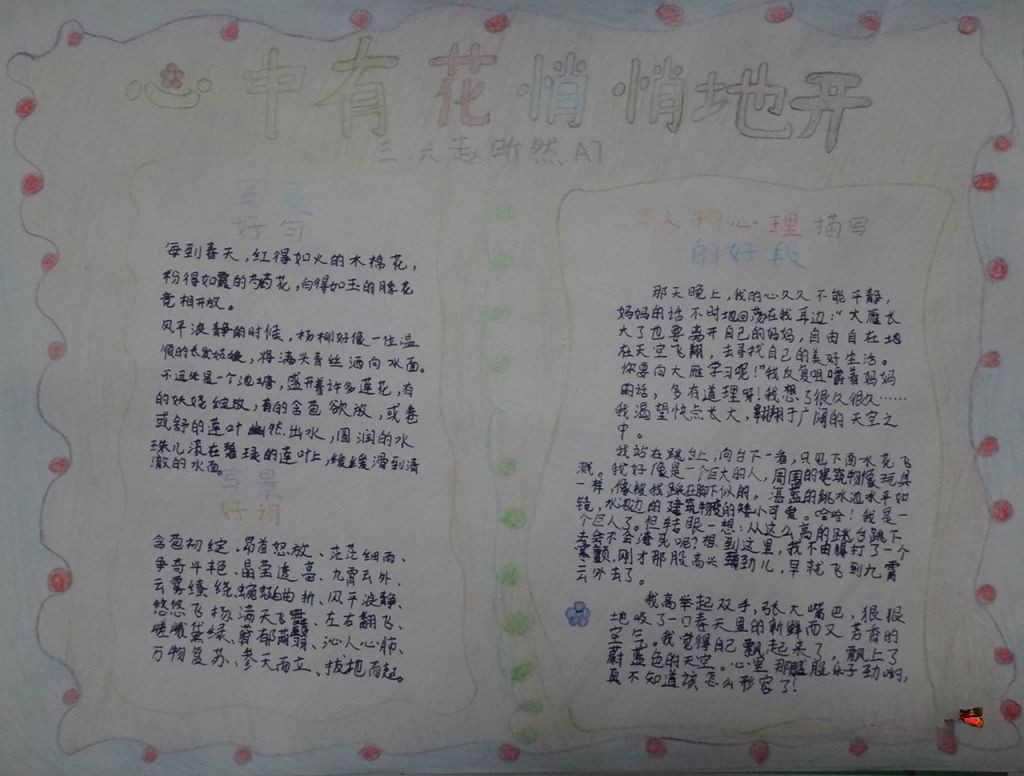 心中有花悄悄地开
三、六赵昕然 A7
写景
好句
每到春天，红得如火的木棉花，
粉得如霞的芍药花，白得如玉的
竞相开放。
风平浪静的时候，杨柳好像一位温
顺的长发姑娘，将满头青丝洒向水面。
不远处是一个池塘，盛开着许多莲花，有
的妖娆绽放，有的含苞欲放，或卷
或舒的莲叶幽然出水，圆润的水
珠儿滚在碧绿的莲叶上，缓缓滑到清
澈的水面。
写景
好词
含苞初绽、昂首怒放、茫茫细雨、
争奇斗艳、晶莹透亮、九霄云外、
云雾缭绕、蜿蜒曲折、风平浪静、
悠悠飞扬、满天飞霞、左右翻飞、
嵯峨黛绿、蓊郁荫翳、沁人心肺、
万物复苏、参天而立、拔地而起。
人物心理描写
的好段
那天晚上，我的心久久不能平静，
妈妈的话不时地回荡在我耳边：“大雁长
大了也要离开自己的妈妈，自由自在地
在天空飞翔，去寻找自己的美好生活。
你要向大雁学习呢！”我反复咀嚼着妈妈
的话，多有道理呀！我想了很久很久……
我渴望快点长大，翱翔于广阔的天空之
中。
我站在跳台上，向台下一看，只见下面水花飞
溅。我好像是一个巨大的人，周围的建筑物像玩具
一样，像被我踩在脚下似的。湛蓝的跳水池水平如
镜，水池边的建筑物变的矮小可爱。哈哈！我是一
个巨人了。但转眼一想：从这么高的跳台跳下
去会不会淹死呢？想到这里，我不由得打了一个
寒颤，刚才那股高兴劲儿，早就飞到九霄
云外去了。
我高举起双手，张大嘴巴，狠狠
地吸了一口春天里的新鲜而又芳香的
空气。我觉得自己飘起来了，飘上了
蔚蓝色的天空。心里那股乐子劲哟，
真不知道该怎么形容了！